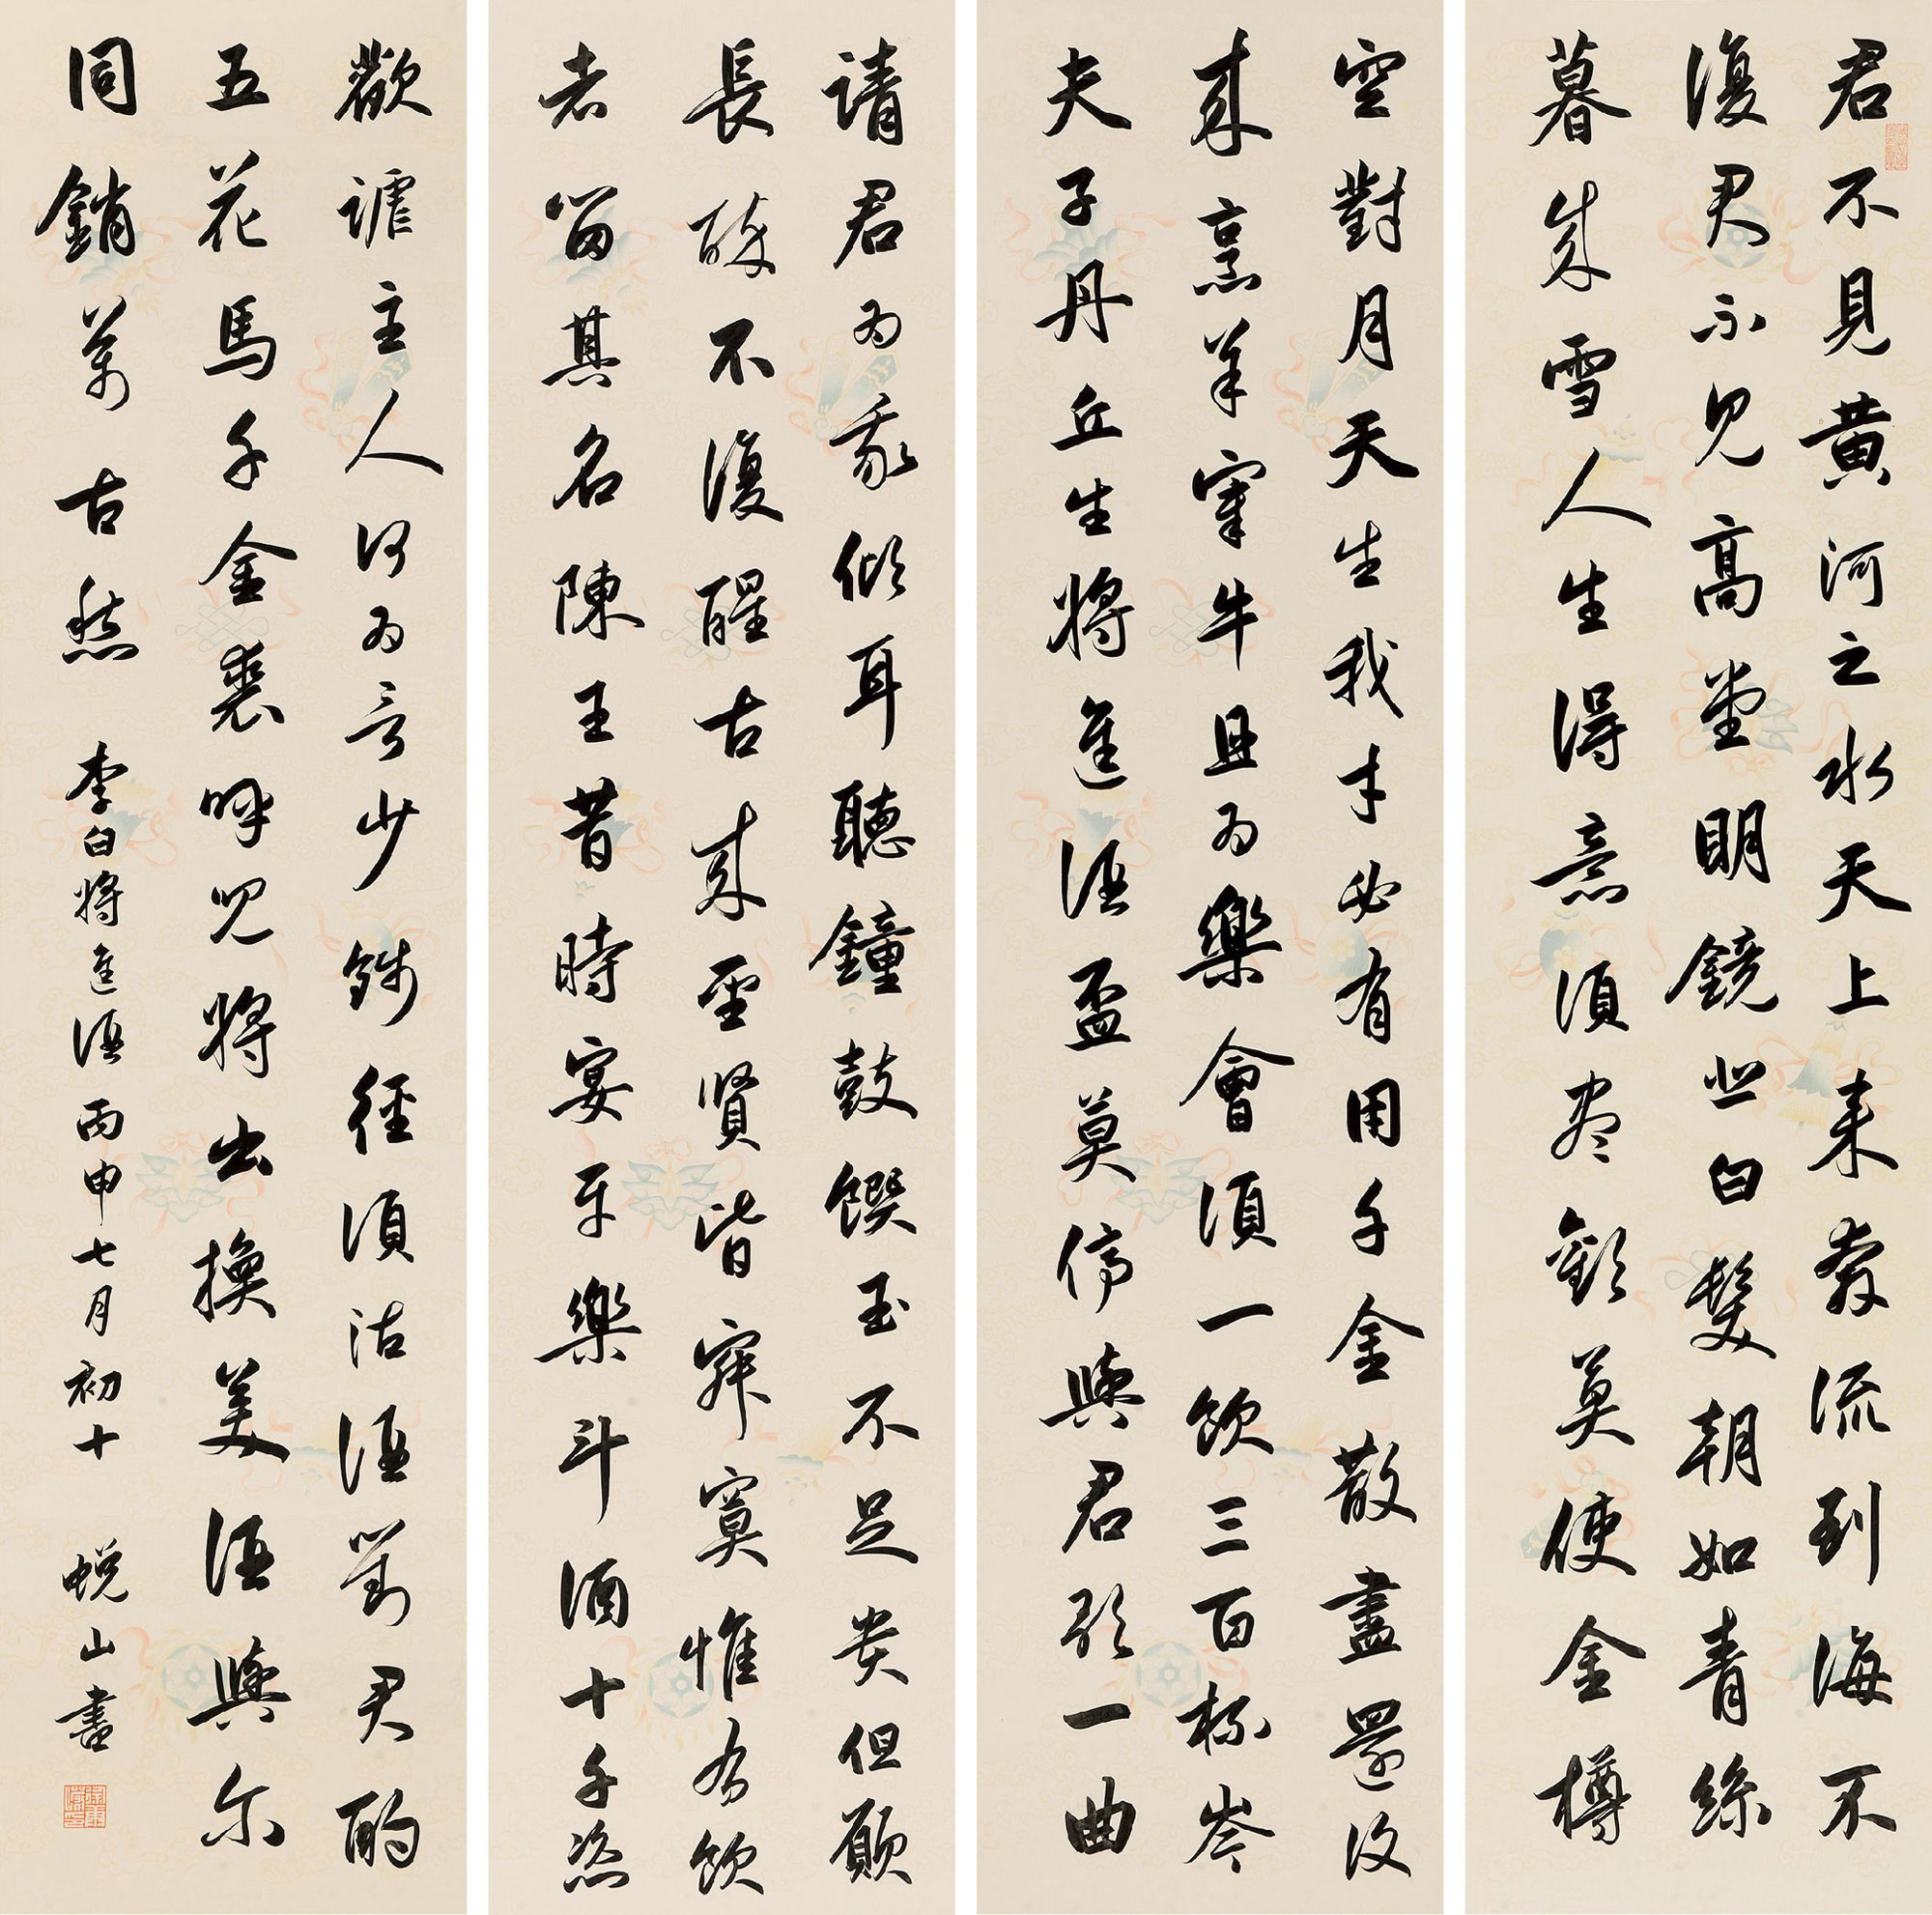 君不見黄河之水天上来奔流到海不
復君不見高堂明鏡悲白髮朝如青絲
暮成雪人生得意須盡歡莫使金樽
空對月天生我才必有用千金散盡還復
來烹羊宰牛且為樂會須一飲三百杯岑
夫子丹丘生將進酒盃莫停與君歌一曲
请君為我傾耳聽鐘鼓饌玉不足貴但願
長醉不復醒古來聖賢皆寂寞惟有飲
者留其名陳王昔時宴平樂斗酒十千恣
歡謔主人何為言少錢徑須沽酒對君酌
五花馬千金裘呼兒將出換美酒與尔
同銷萬古愁 李白將進酒 丙申七月初十 蜕山書